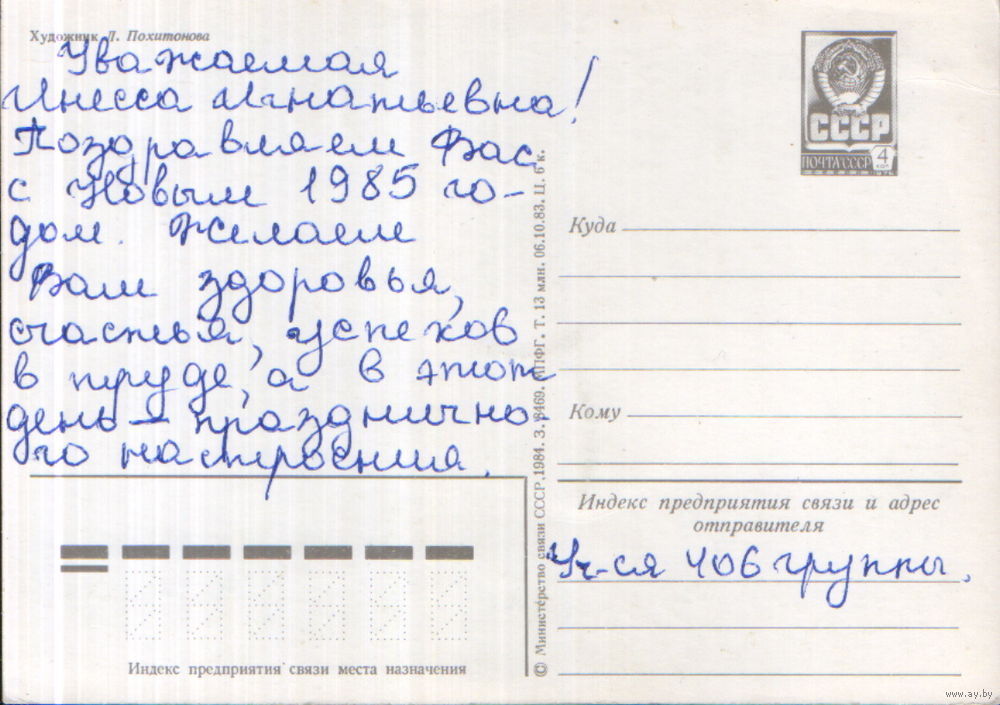 Художник Л. Похитонова
Уважаемая
Инесса Игнатьевна!
Поздравляем Вас
с Новым 1985 го-
дом. Желаем
Вам здоровья,
счастья, успехов
в труде, а в этот
день – празднично-
го настроения.
СССР
ПОЧТА СССР 4 коп
Куда
Кому
Индекс предприятия связи и адрес
отправителя
Уч-ся 406 группы.
Индекс предприятия связи места назначения
© Министерство связи СССР, 1984. З. 8469. МПФГ. Т. 13 млн. 06.10.83. Ц. 6 к.
www.ay.by